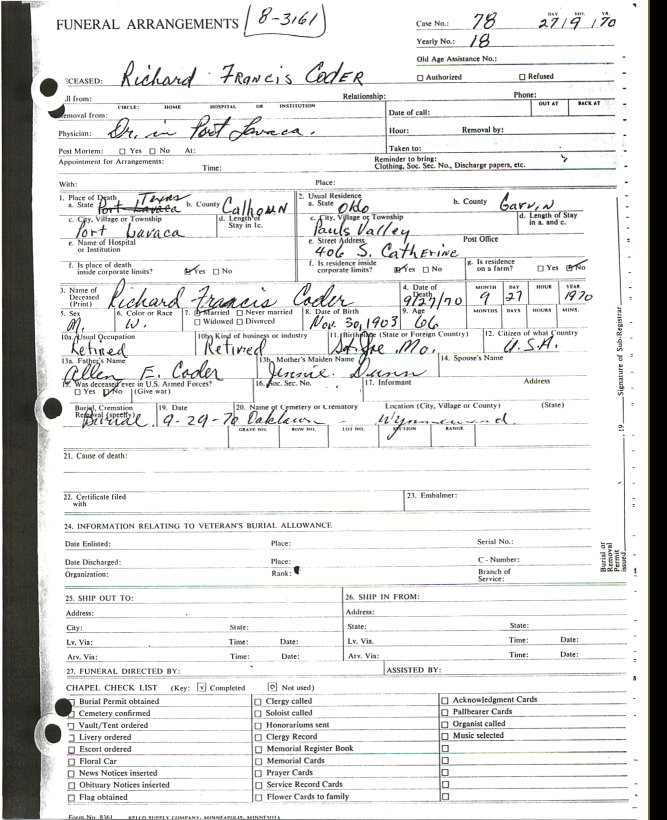 FUNERAL ARRANGEMENTS (8-3161)
Case No.: 78 DAY MO. YR. 27 19 170
Yearly No.: 18
Old Age Assistance No.:
□ Authorized □ Refused
CEASED: Richard Francis Coder
ll from: Relationship: Phone:
CIRCLE: HOME HOSPITAL OR INSTITUTION OUT AT BACK AT
emoval from: Date of call:
Physician: Dr. in Port Lavaca. Hour: Removal by:
Post Mortem: □ Yes □ No At: Taken to:
Appointment for Arrangements: Time: Reminder to bring: Clothing, Soc. Sec. No., Discharge papers, etc.
With: Place:
1. Place of Death a. State Port Lavaca Texas b. County Calhoun
2. Usual Residence a. State Okla b. County Garvin
c. City, Village or Township Port Lavaca d. Length of Stay in 1c.
c. City, Village or Township Pauls Valley d. Length of Stay in a. and c.
e. Name of Hospital or Institution
e. Street Address 406 S. Catherine Post Office
f. Is place of death inside corporate limits? ☑ Yes □ No
f. Is residence inside corporate limits? ☑ Yes □ No g. Is residence on a farm? □ Yes ☑ No
3. Name of Deceased (Print) Richard Francis Coder
4. Date of Death 9/27/70 MONTH 9 DAY 27 HOUR YEAR 1970
5. Sex M. 6. Color or Race W. 7. ☑ Married □ Never married □ Widowed □ Divorced
8. Date of Birth Nov. 30, 1903 9. Age 66 MONTHS DAYS HOURS MINS.
10a. Usual Occupation Retired 10b. Kind of business or industry Retired
11. Birthplace (State or Foreign Country) Mo. 12. Citizen of what Country U.S.A.
13a. Father's Name Allen E. Coder 13b. Mother's Maiden Name Jennie Dunn 14. Spouse's Name
15. Was deceased ever in U.S. Armed Forces? □ Yes ☑ No (Give war) 16. Soc. Sec. No. 17. Informant Address
Burial, Cremation Removal (specify) Burial 19. Date 9-29-70 20. Name of Cemetery or Crematory Oaklawn Location (City, Village or County) Wynnewood (State)
GRAVE NO. ROW NO. LOT NO. SECTION RANGE
21. Cause of death:
22. Certificate filed with 23. Embalmer:
24. INFORMATION RELATING TO VETERAN'S BURIAL ALLOWANCE
Date Enlisted: Place: Serial No.:
Date Discharged: Place: C - Number:
Organization: Rank: Branch of Service:
19 Signature of Sub-Registrar
Burial or Removal Permit issued
25. SHIP OUT TO: 26. SHIP IN FROM:
Address: Address:
City: State: State: State:
Lv. Via: Time: Date: Lv. Via. Time: Date:
Arv. Via: Time: Date: Arv. Via: Time: Date:
27. FUNERAL DIRECTED BY: ASSISTED BY:
CHAPEL CHECK LIST (Key: [v] Completed [o] Not used)
□ Burial Permit obtained □ Clergy called □ Acknowledgment Cards
□ Cemetery confirmed □ Soloist called □ Pallbearer Cards
□ Vault/Tent ordered □ Honorariums sent □ Organist called
□ Livery ordered □ Clergy Record □ Music selected
□ Escort ordered □ Memorial Register Book □
□ Floral Car □ Memorial Cards □
□ News Notices inserted □ Prayer Cards □
□ Obituary Notices inserted □ Service Record Cards □
□ Flag obtained □ Flower Cards to family □
Form No. 8361 KELCO SUPPLY COMPANY, MINNEAPOLIS, MINNESOTA